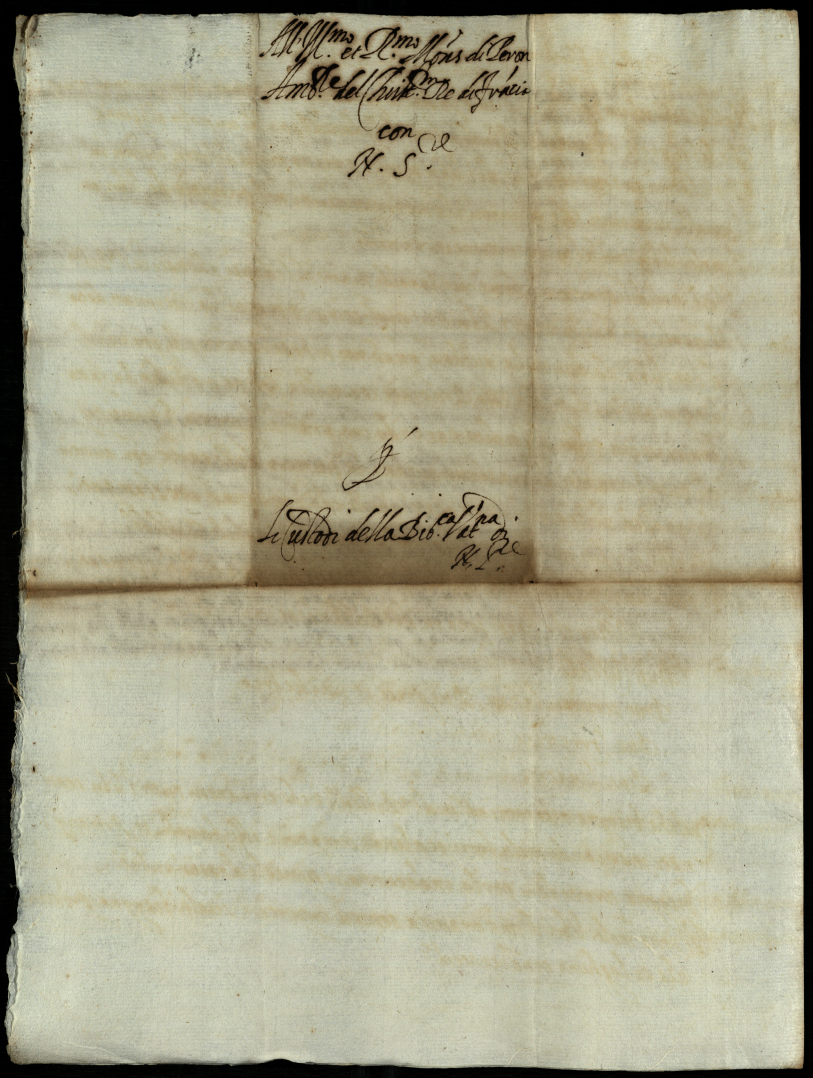 All'Ill.mo et R.mo Mons.r di Peron
Amb.re del Christ.mo Re di Frãcia
con
N. S.re
P
Li Custodi della Bib.ca Vat.na di
N. S.re